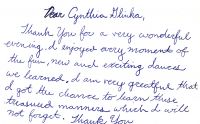 Dear Cynthia Glinka,
Thank you for a very wonderful
evening. I enjoyed every moment of
the fun, new and exciting dances
we learned. I am very greatful that
I got the chance to learn these
treasured manners which I will
not forget. Thank You